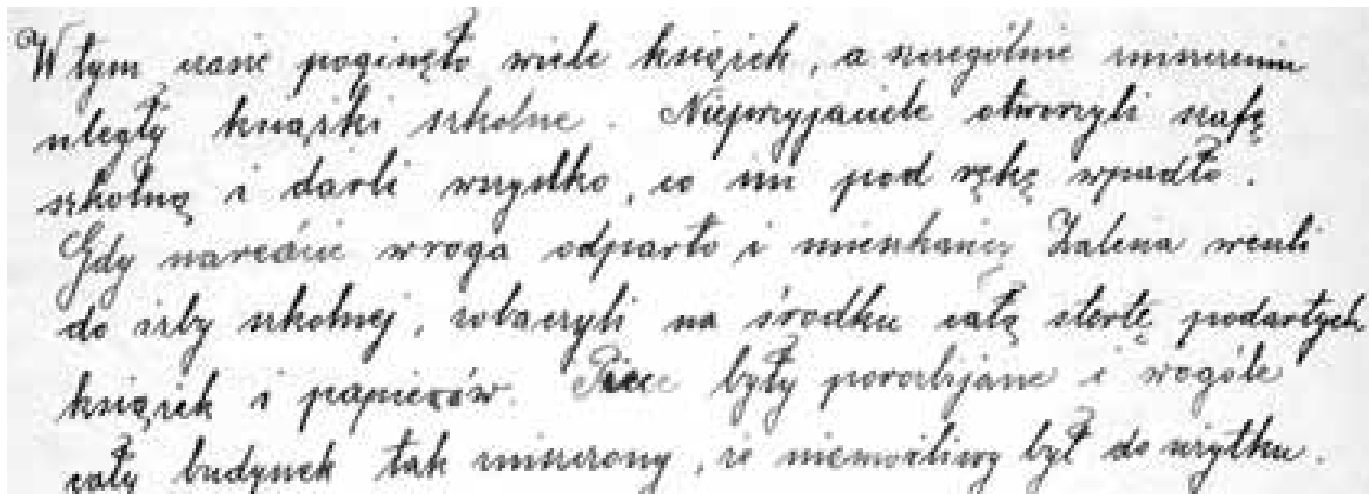 W tym czasie poginęło wiele książek, a szczególnie zniszczeniu
uległy książki szkolne. Nieprzyjaciele otworzyli szafę
szkolną i darli wszystko, co im pod rękę wpadło.
Gdy nareście wroga odparto i mieszkańcy Zalesia weszli
do izby szkolnej, zobaczyli na środku całą stertę podartych
książek i papierów. Piece były porozbijane i wogóle
cały budynek tak zniszczony, że niemożliwy był do użytku.